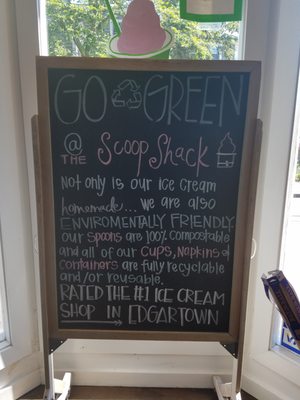 GO GREEN
@
THE Scoop Shack
Not only is our ice cream
homemade... we are also
ENVIROMENTALLY FRIENDLY.
our spoons are 100% compostable
and all of our cups, napkins &
containers are fully recyclable
and/or reusable.
RATED THE #1 ICE CREAM
SHOP IN EDGARTOWN